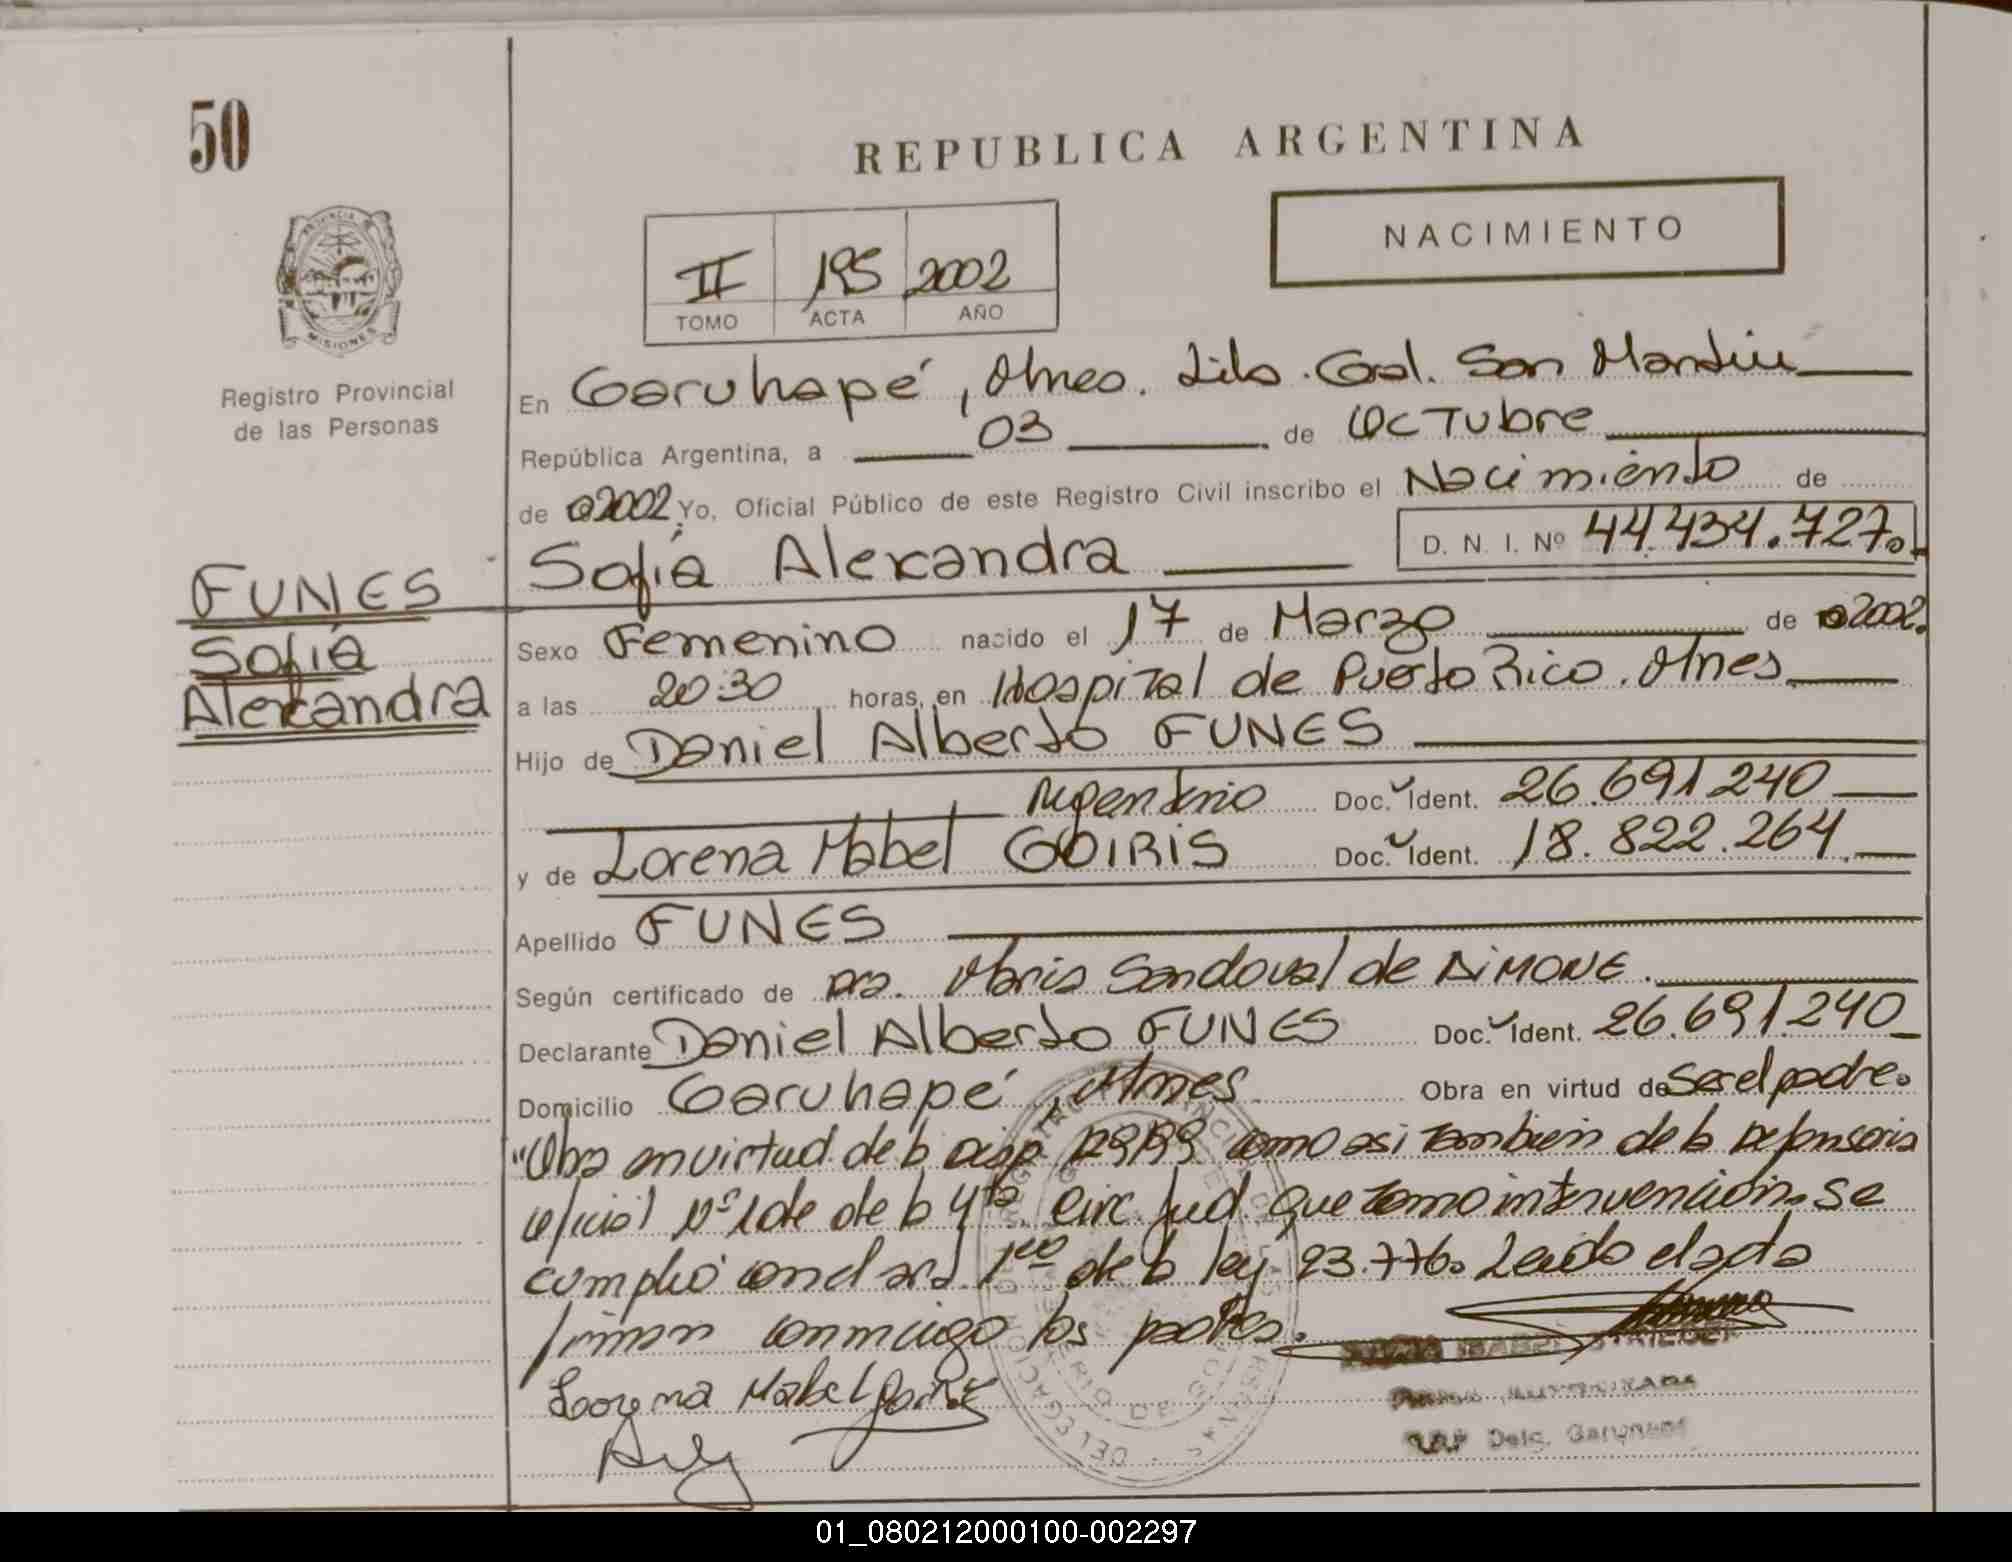 50
REPUBLICA ARGENTINA
NACIMIENTO
PROVINCIA DE
MISIONES
Registro Provincial
de las Personas
II 195 2002
TOMO ACTA AÑO
En Garuhapé, Mnes. Lib. Gral. San Martín
República Argentina, a 03 de Octubre
de 2002 Yo, Oficial Público de este Registro Civil inscribo el Nacimiento de
Sofía Alexandra D. N. I. Nº 44.434.727.
FUNES
Sofía
Alexandra
Sexo Femenino nacido el 17 de Marzo de 2002.
a las 20:30 horas, en Hospital de Puerto Rico. Mnes
Hijo de Daniel Alberto FUNES
Argentino Doc. Ident. 26.691.240
y de Lorena Mabel GOIRIS Doc. Ident. 18.822.264
Apellido FUNES
Según certificado de Dra. Maria Sandoval de DIMONE.
Declarante Daniel Alberto FUNES Doc. Ident. 26.691.240
Domicilio Garuhapé, Mnes. Obra en virtud de Ser el padre.
"Obra en virtud de la Disp. como asi tambien de la Defensoria
Oficial Nº 1 de de la 4ta Circ. Jud. que tomo intervencion. Se
cumplió con el art. 1ro de la ley 23.776. Leida el acta
firman conmigo los padres.
Lorena Mabel Goiris
ISABEL
Deleg. Garuhape
01_080212000100-002297